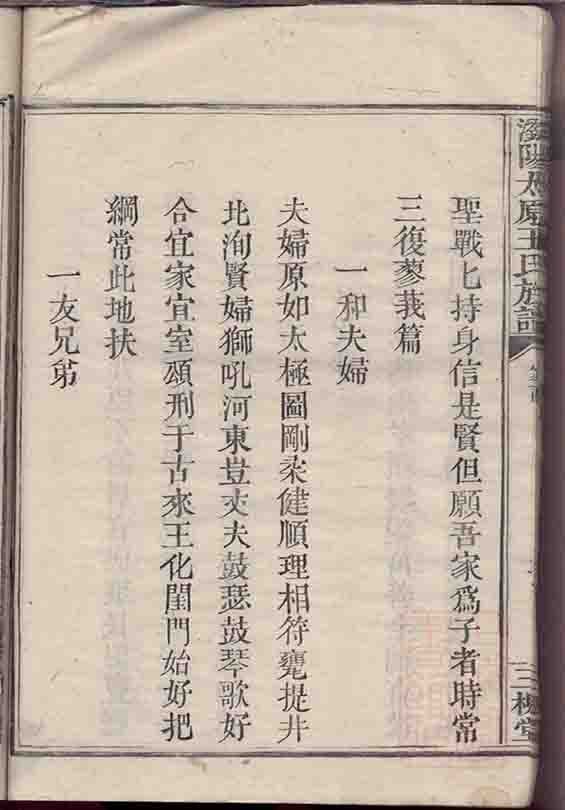 瀏陽太原王氏族譜
三槐堂
聖戰匕持身信是賢但願吾家爲子者時常
三復蓼莪篇
一和夫婦
夫婦原如太極圖剛柔健順理相符甕提井
北洵賢婦獅吼河東豈丈夫鼓瑟鼓琴歌好
合宜家宜室頌刑于古來王化閨門始好把
綱常此地扶
一友兄弟